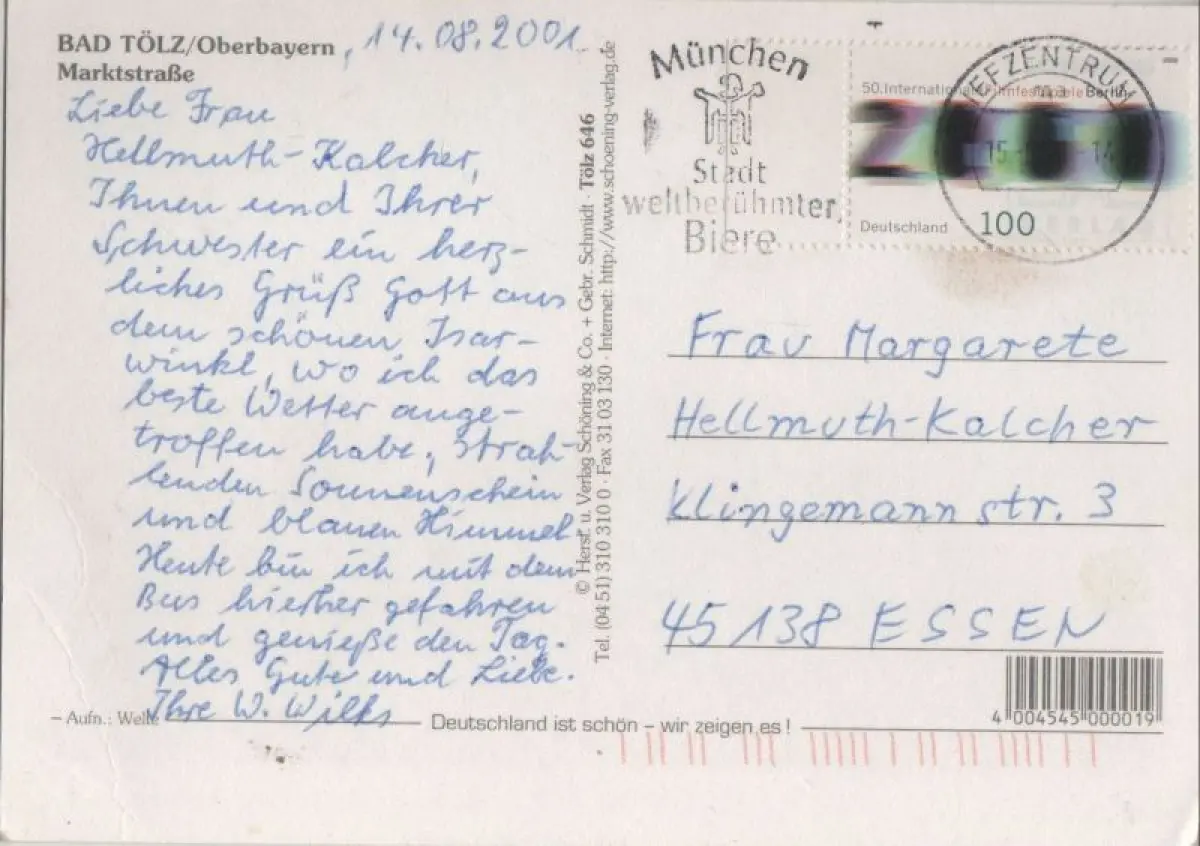 BAD TÖLZ/Oberbayern, 14.08.2001
Marktstraße
Liebe Frau
Hellmuth-Kalcher,
Ihnen und Ihrer
Schwester ein herz-
liches Grüß Gott aus
dem schönen Isar-
winkl, wo ich das
beste Wetter ange-
troffen habe, Strah-
lenden Sonnenschein
und blauen Himmel
Heute bin ich mit dem
Bus hierher gefahren
und genieße den Tag.
Alles Gute und Liebe.
Ihre W. Wilks
– Aufn.: Welle
Deutschland ist schön – wir zeigen es !
© Herst. u. Verlag Schöning & Co. + Gebr. Schmidt · Tölz 646
Tel. (04 51) 310 310 0 · Fax 31 03 130 · Internet: http://www.schoening-verlag.de
München
Stadt
weltberühmter
Biere
50.Internationale Filmfestspiele Berlin
Deutschland 100
BRIEFZENTRUM
Frau Margarete
Hellmuth-Kalcher
Klingemannstr. 3
45138 ESSEN
4 004545 000019